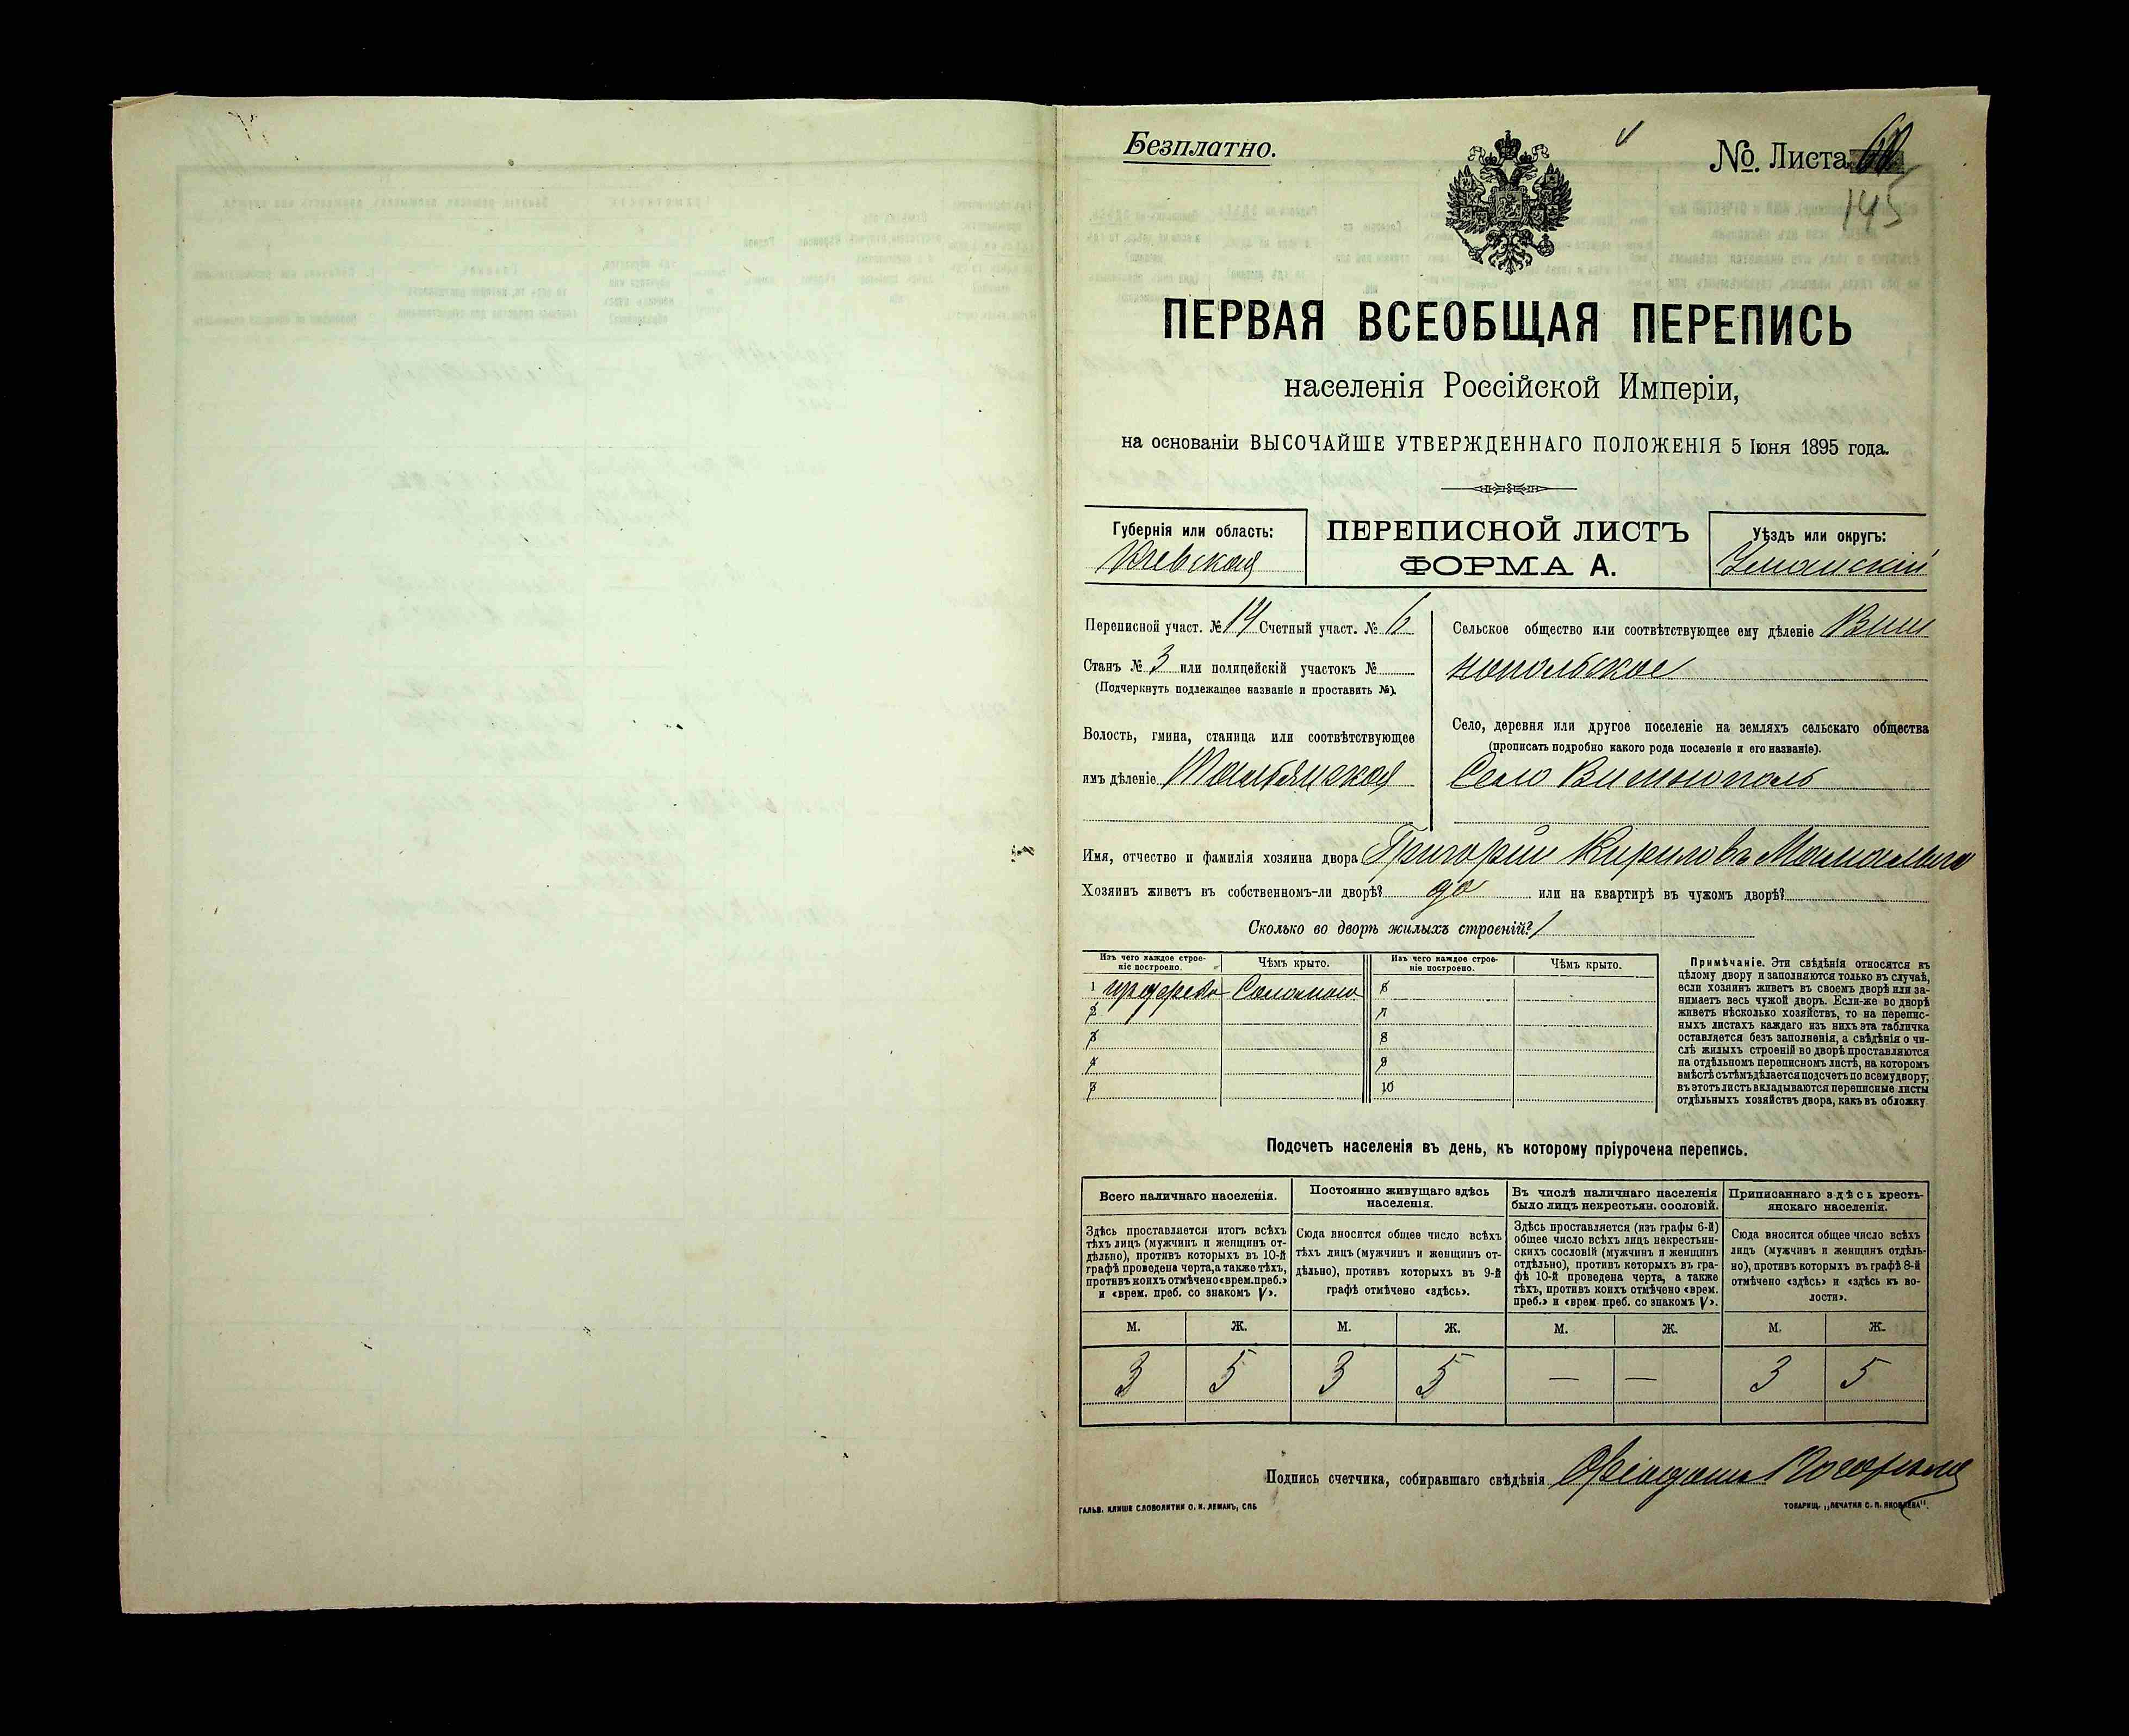 Безплатно.
№. Листа
145
ПЕРВАЯ ВСЕОБЩАЯ ПЕРЕПИСЬ
населенія Россійской Имперіи,
на основаніи ВЫСОЧАЙШЕ УТВЕРЖДЕННАГО ПОЛОЖЕНІЯ 5 Іюня 1895 года.
Губернія или область:
Кіевская
ПЕРЕПИСНОЙ ЛИСТЪ
ФОРМА А.
Уѣздъ или округъ:
Уманскій
Переписной участ. № 14 Счетный участ. № 6
Станъ № 3 или полицейскій участокъ №
(Подчеркнуть подлежащее названіе и проставить №).
Волость, гмина, станица или соотвѣтствующее
имъ дѣленіе Тальянская
Сельское общество или соотвѣтствующее ему дѣленіе Виш
нопольское
Село, деревня или другое поселеніе на земляхъ сельскаго общества
(прописать подробно какого рода поселеніе и его названіе).
Село Вишнополь
Имя, отчество и фамилія хозяина двора Григорій Кириловъ
Хозяинъ живетъ въ собственномъ-ли дворѣ? да или на квартирѣ въ чужомъ дворѣ?
Сколько во дворѣ жилыхъ строеній? 1
Изъ чего каждое строе-
ніе построено.
Чѣмъ крыто.
Изъ чего каждое строе-
ніе построено.
Чѣмъ крыто.
1 Соломою
2
3
4
5
6
7
8
9
10
Примѣчаніе. Эти свѣдѣнія относятся къ
цѣлому двору и заполняются только въ случаѣ,
если хозяинъ живетъ въ своемъ дворѣ или за-
нимаетъ весь чужой дворъ. Если-же во дворѣ
живетъ нѣсколько хозяйствъ, то на перепис-
ныхъ листахъ каждаго изъ нихъ эта табличка
оставляется безъ заполненія, а свѣдѣнія о чи-
слѣ жилыхъ строеній во дворѣ проставляются
на отдѣльномъ переписномъ листѣ, на которомъ
вмѣстѣ съ тѣмъ дѣлается подсчетъ по всему двору;
въ этотъ листъ вкладываются переписные листы
отдѣльныхъ хозяйствъ двора, какъ въ обложку.
Подсчетъ населенія въ день, къ которому пріурочена перепись.
Всего наличнаго населенія.
Здѣсь проставляется итогъ всѣхъ
тѣхъ лицъ (мужчинъ и женщинъ от-
дѣльно), противъ которыхъ въ 10-й
графѣ проведена черта, а также тѣхъ,
противъ коихъ отмѣчено «врем. преб.»
и «врем. преб. со знакомъ V».
Постоянно живущаго здѣсь
населенія.
Сюда вносится общее число всѣхъ
тѣхъ лицъ (мужчинъ и женщинъ от-
дѣльно), противъ которыхъ въ 9-й
графѣ отмѣчено «здѣсь».
Въ числѣ наличнаго населенія
было лицъ некрестьян. сословій.
Здѣсь проставляется (изъ графы 6-й)
общее число всѣхъ лицъ некрестьян-
скихъ сословій (мужчинъ и женщинъ
отдѣльно), противъ которыхъ въ гра-
фѣ 10-й проведена черта, а также
тѣхъ, противъ коихъ отмѣчено «врем.
преб.» и «врем. преб. со знакомъ V».
Приписаннаго здѣсь кресть-
янскаго населенія.
Сюда вносится общее число всѣхъ
лицъ (мужчинъ и женщинъ отдѣль-
но), противъ которыхъ въ графѣ 8-й
отмѣчено «здѣсь» и «здѣсь къ во-
лости».
М. Ж. М. Ж. М. Ж. М. Ж.
3 5 3 5 — — 3 5
Подпись счетчика, собиравшаго свѣдѣнія
ГАЛЬВ. КЛИШЕ СЛОВОЛИТНИ О. И. ЛЕМАНЪ, СПБ
ТОВАРИЩ. „ПЕЧАТНЯ С. П. ЯКОВЛЕВА".